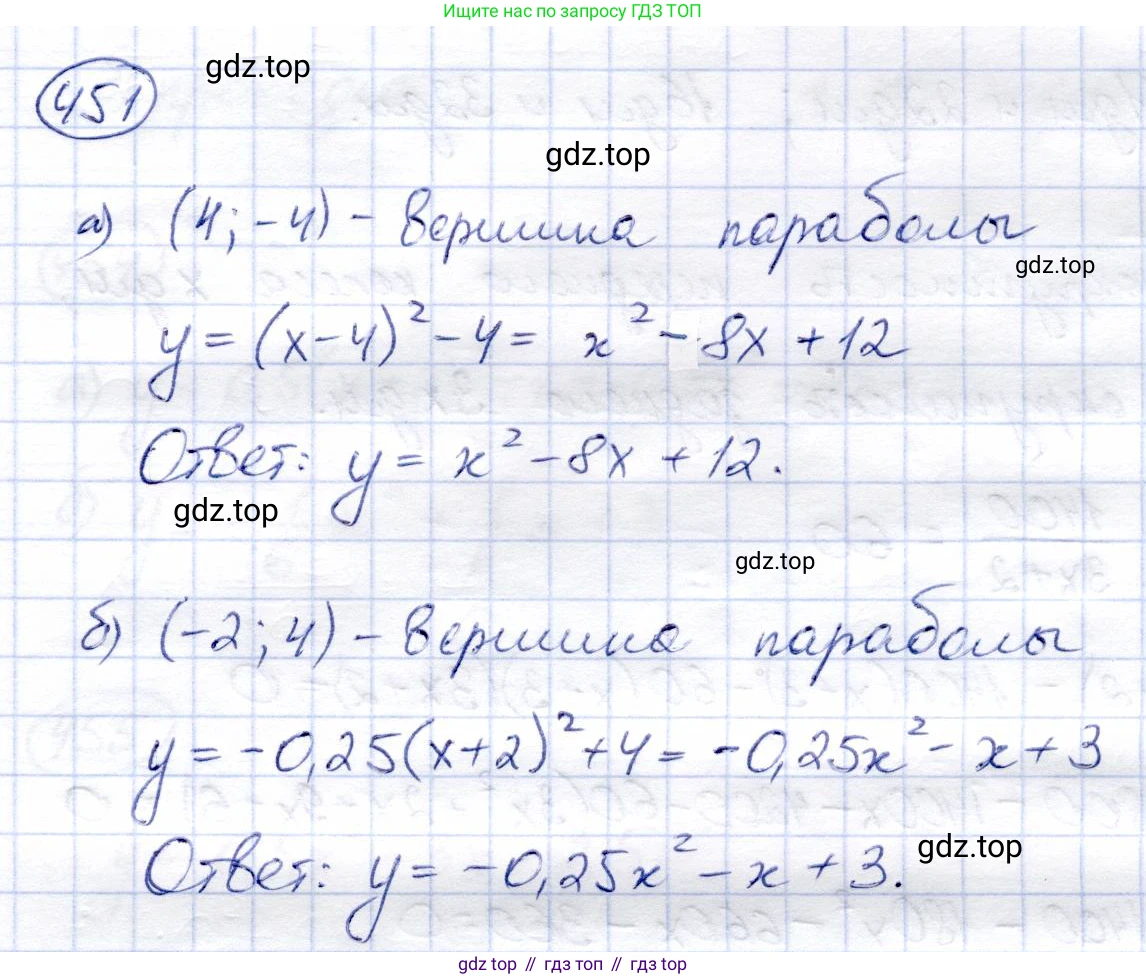 Ищите нас по запросу ГДЗ ТОП
451
gdz.top
gdz.top
а) (4; -4) - вершина параболы
gdz.top
y = (x-4)² - 4 = x² - 8x + 12
Ответ: y = x² - 8x + 12.
gdz.top
gdz.top
б) (-2; 4) - вершина параболы
y = -0,25(x+2)² + 4 = -0,25x² - x + 3
Ответ: y = -0,25x² - x + 3.
gdz.top
gdz top // гдз топ // gdz top